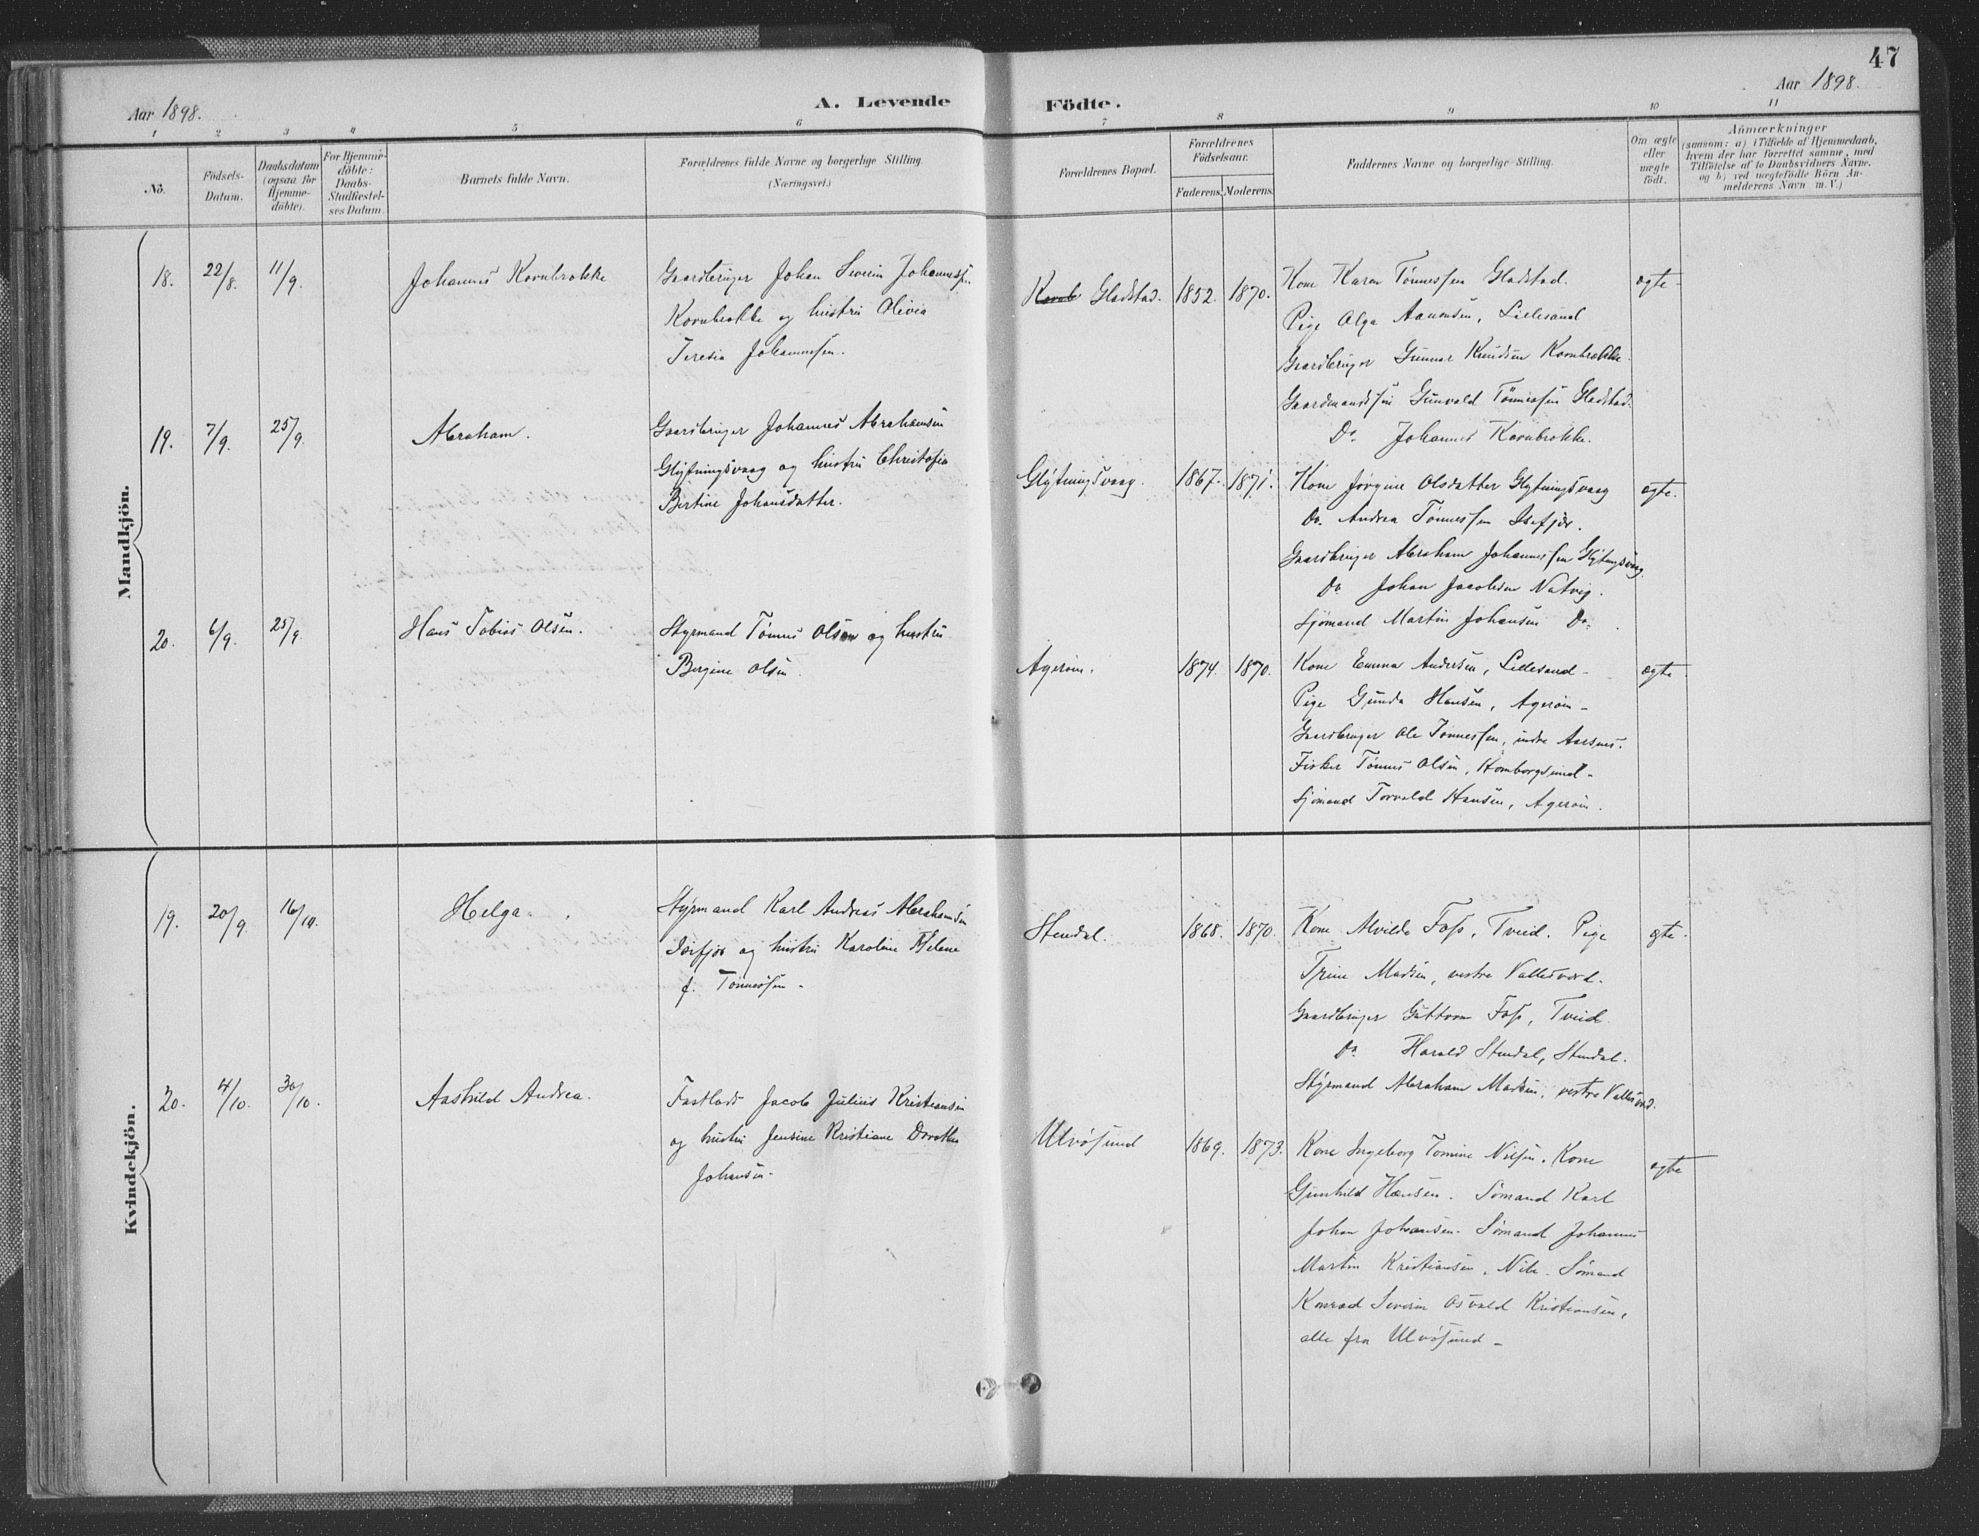 47
Aar 1898.
A. Levende
Födte.
Aar 1898.
1 2 3 4 5 6 7 8 9 10 11
No.
Födsels-
Datum.
Daabsdatum
(ogsaa for
Hjemme-
döbte).
For Hjemme-
döbte:
Daabs-
Stadfæstel-
ses Datum.
Barnets fulde Navn.
Forældrenes fulde Navne og borgerlige Stilling.
(Næringsvei.)
Forældrenes Bopæl.
Forældrenes
Födselsaar.
Faderens.
Moderens.
Faddernes Navne og borgerlige Stilling.
Om ægte
eller
uægte
født.
Anmærkninger
(saasom: a) i Tilfælde af Hjemmedaab,
hvem der har forrettet samme, med
Tilföielse af to Daabsvidners Navne,
og b) ved uægtefödte Börn An-
melderens Navn m. V.)
Mandkjön.
18. 22/8. 11/9.
Johannes Kornbrokke
Gaardbruger Johan Severin Johannessen
Kornbrokke og hustru Olivia
Teresia Johannessen.
Kornb Gladstad. 1852. 1870.
Kone Karen Tönnessen Gladstad.
Pige Olga Aanonsen, Lillesand
Gaardbruger Gunnar Knudsen Kornbrokke.
Gaardmandssön Gunvald Tönnessen Gladstad.
Do. Johannes Kornbrokke.
ægte
19. 7/9. 25/9.
Abraham.
Gaardbruger Johannes Abrahamsen
Glytningsvaag og hustru Christofia
Bertine Johansdatter.
Glytningsvaag. 1867. 1871.
Kone Jörgine Olsdatter Glytningsvaag
Do. Andrea Tönnessen Isefjær.
Gaardbruger Abraham Johannessen Glytningsvaag.
Do. Johan Jacobsen Natvig.
Sjömand Martin Johansen Do.
ægte.
20. 6/9. 25/9.
Hans Tobias Olsen.
Styrmand Tönnes Olsen og hustru
Bergine Olsen.
Ageröen. 1874. 1870.
Kone Emma Andersen, Lillesand
Pige Gunda Hansen, Ageröen
Gaardbruger Ole Tönnessen, indre Aarsnes.
Fisker Tönnes Olsen, Homborgsund
Sjömand Torvald Hansen, Ageröen.
ægte
Kvindekjön.
19. 20/9. 16/10.
Helga.
Styrmand Karl Andreas Abrahamsen
Isefjær og hustru Karoline Helene
f. Tönnessen
Stendal. 1868. 1870.
Kone Alvilde Foss, Tveid. Pige
Trine Madsen, vestre Vallesverd.
Gaardbruger Guttorm Foss, Tveid.
Do. Harald Stendal, Stendal.
Styrmand Abraham Madsen, vestre Vallesverd.
ægte.
20. 4/10. 30/10.
Aashild Andrea.
Fastlods Jacob Julius Kristiansen
og hustru Jensine Kristiane Dorothea
Johansen
Ulvösund 1869. 1873.
Kone Ingeborg Tomine Nilsen. Kone
Gunhild Hansen. Sömand Karl
Johan Johansen. Sömand Johannes
Martin Kristiansen. Sömand
Konrad Severin Osvald Kristiansen,
alle fra Ulvösund
ægte